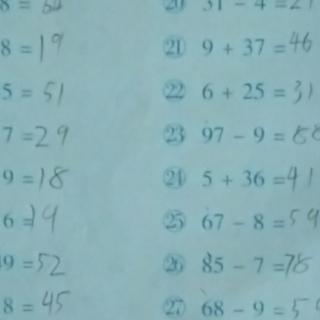 8 =
⑳ 31 - 4 = 27
8 = 19
㉑ 9 + 37 = 46
5 = 51
㉒ 6 + 25 = 31
7 = 29
㉓ 97 - 9 = 88
9 = 18
㉔ 5 + 36 = 41
6 = 19
㉕ 67 - 8 = 59
49 = 52
㉖ 85 - 7 = 78
8 = 45
㉗ 68 - 9 = 5